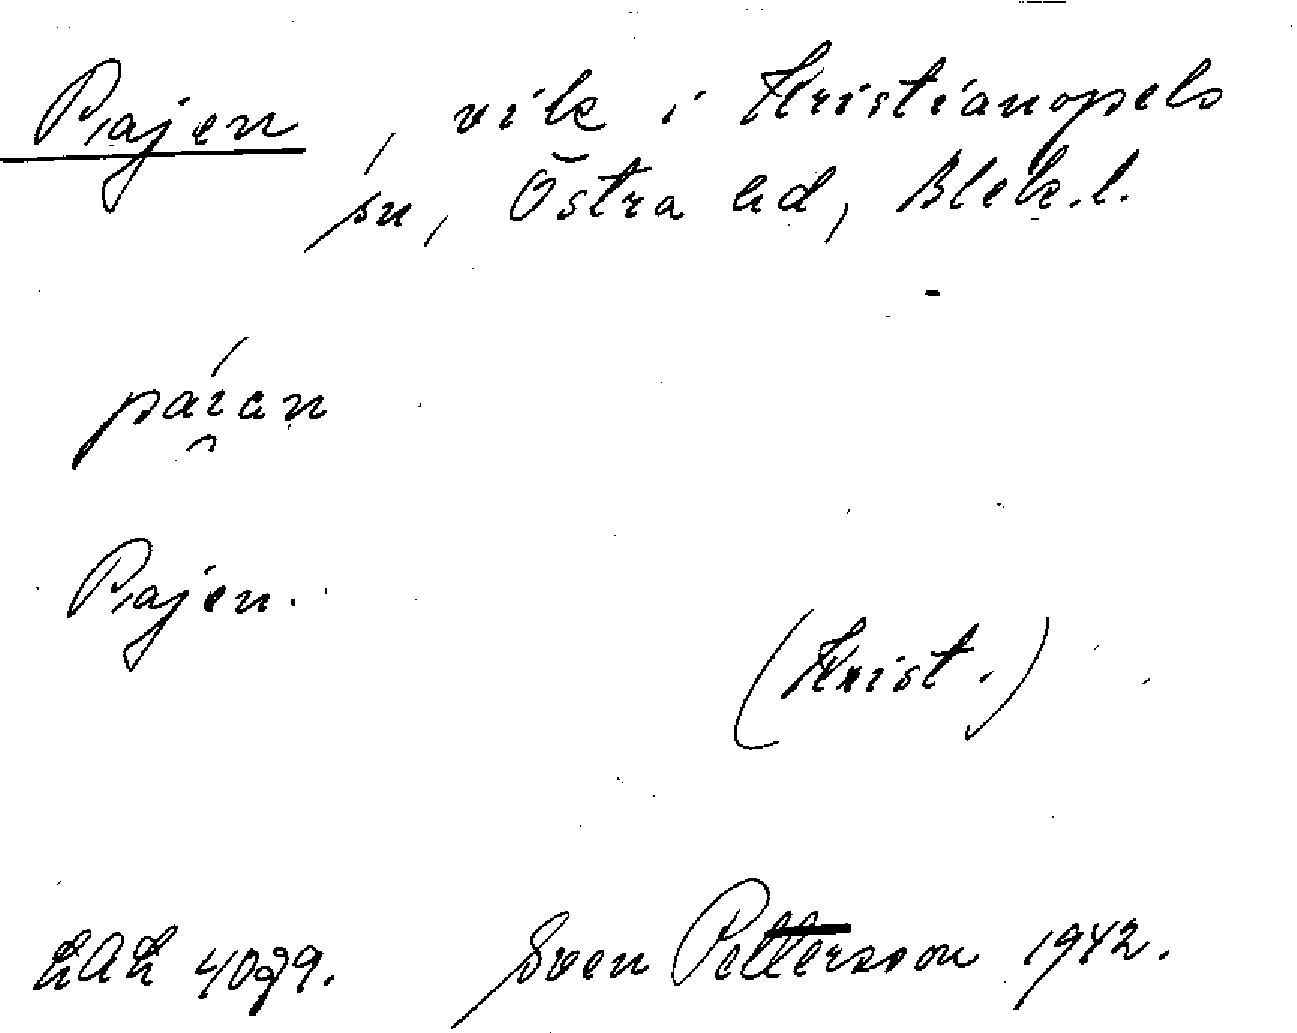 Pajen, vik i Kristianopels
sn, Östra hd, Blek.l.
páı̯an
Pajen.
(Krist.)
LAL Sven Pettersson 1942.